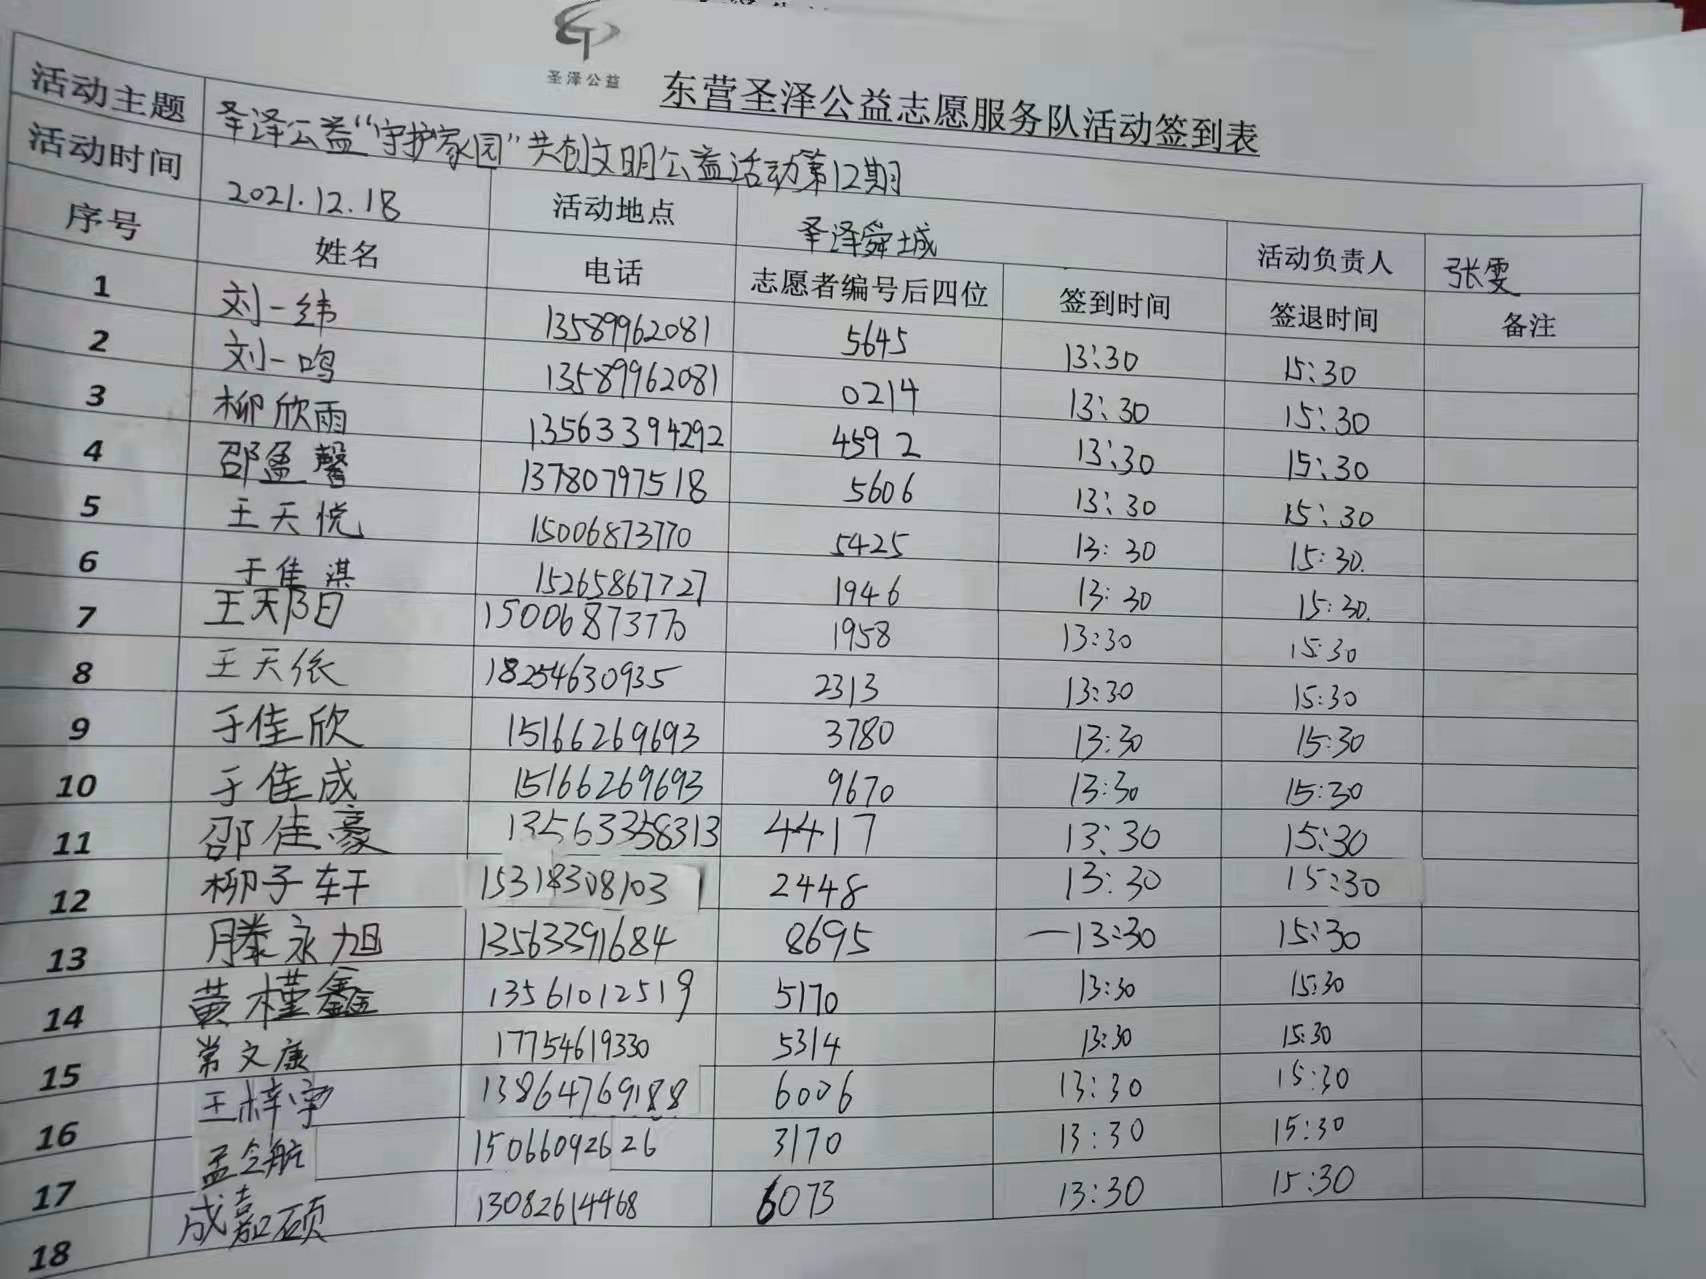 圣泽公益
东营圣泽公益志愿服务队活动签到表
活动主题 圣泽公益“守护家园”共创文明公益活动第12期
活动时间 2021.12.18 活动地点 圣泽舜城 活动负责人 张雯
序号 姓名 电话 志愿者编号后四位 签到时间 签退时间 备注
1 刘一纬 13589962081 5645 13:30 15:30
2 刘一鸣 13589962081 0214 13:30 15:30
3 柳欣雨 13563394292 4592 13:30 15:30
4 邵孟馨 13780797518 5606 13:30 15:30
5 王天悦 15006873770 5425 13:30 15:30.
6 于佳淇 15265867727 1946 13:30 15:30.
7 王天阳 15006873770 1958 13:30 15:30
8 王天依 18254630935 2313 13:30 15:30
9 于佳欣 15166269693 3780 13:30 15:30
10 于佳成 15166269693 9670 13:30 15:30
11 邵佳豪 13563358313 4417 13:30 15:30
12 柳子轩 15318308103 2448 13:30 15:30
13 滕永旭 13563391684 8695 一13:30 15:30
14 黄槿鑫 13561012519 5170 13:30 15:30
15 常文康 17754619330 5314 13:30 15:30
16 王梓宇 13864769188 6006 13:30 15:30
17 孟令航 15066092626 3170 13:30 15:30
18 成嘉硕 13082614468 6073 13:30 15:30